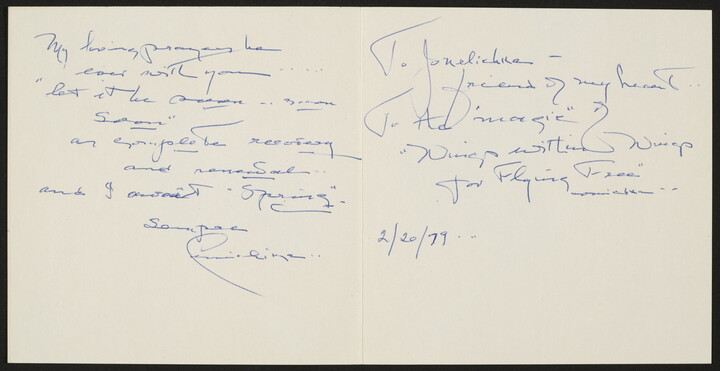 My loving prayers be
ever with you .....
"let it be soon .. soon
soon"
a complete recovery
and renewal ..
and I await "Spring" -
Sempre
To Jonelichka -
friend of my heart ..
To the "magic" of
"Wings within Wings
for Flying Free"
2/20/79 ...